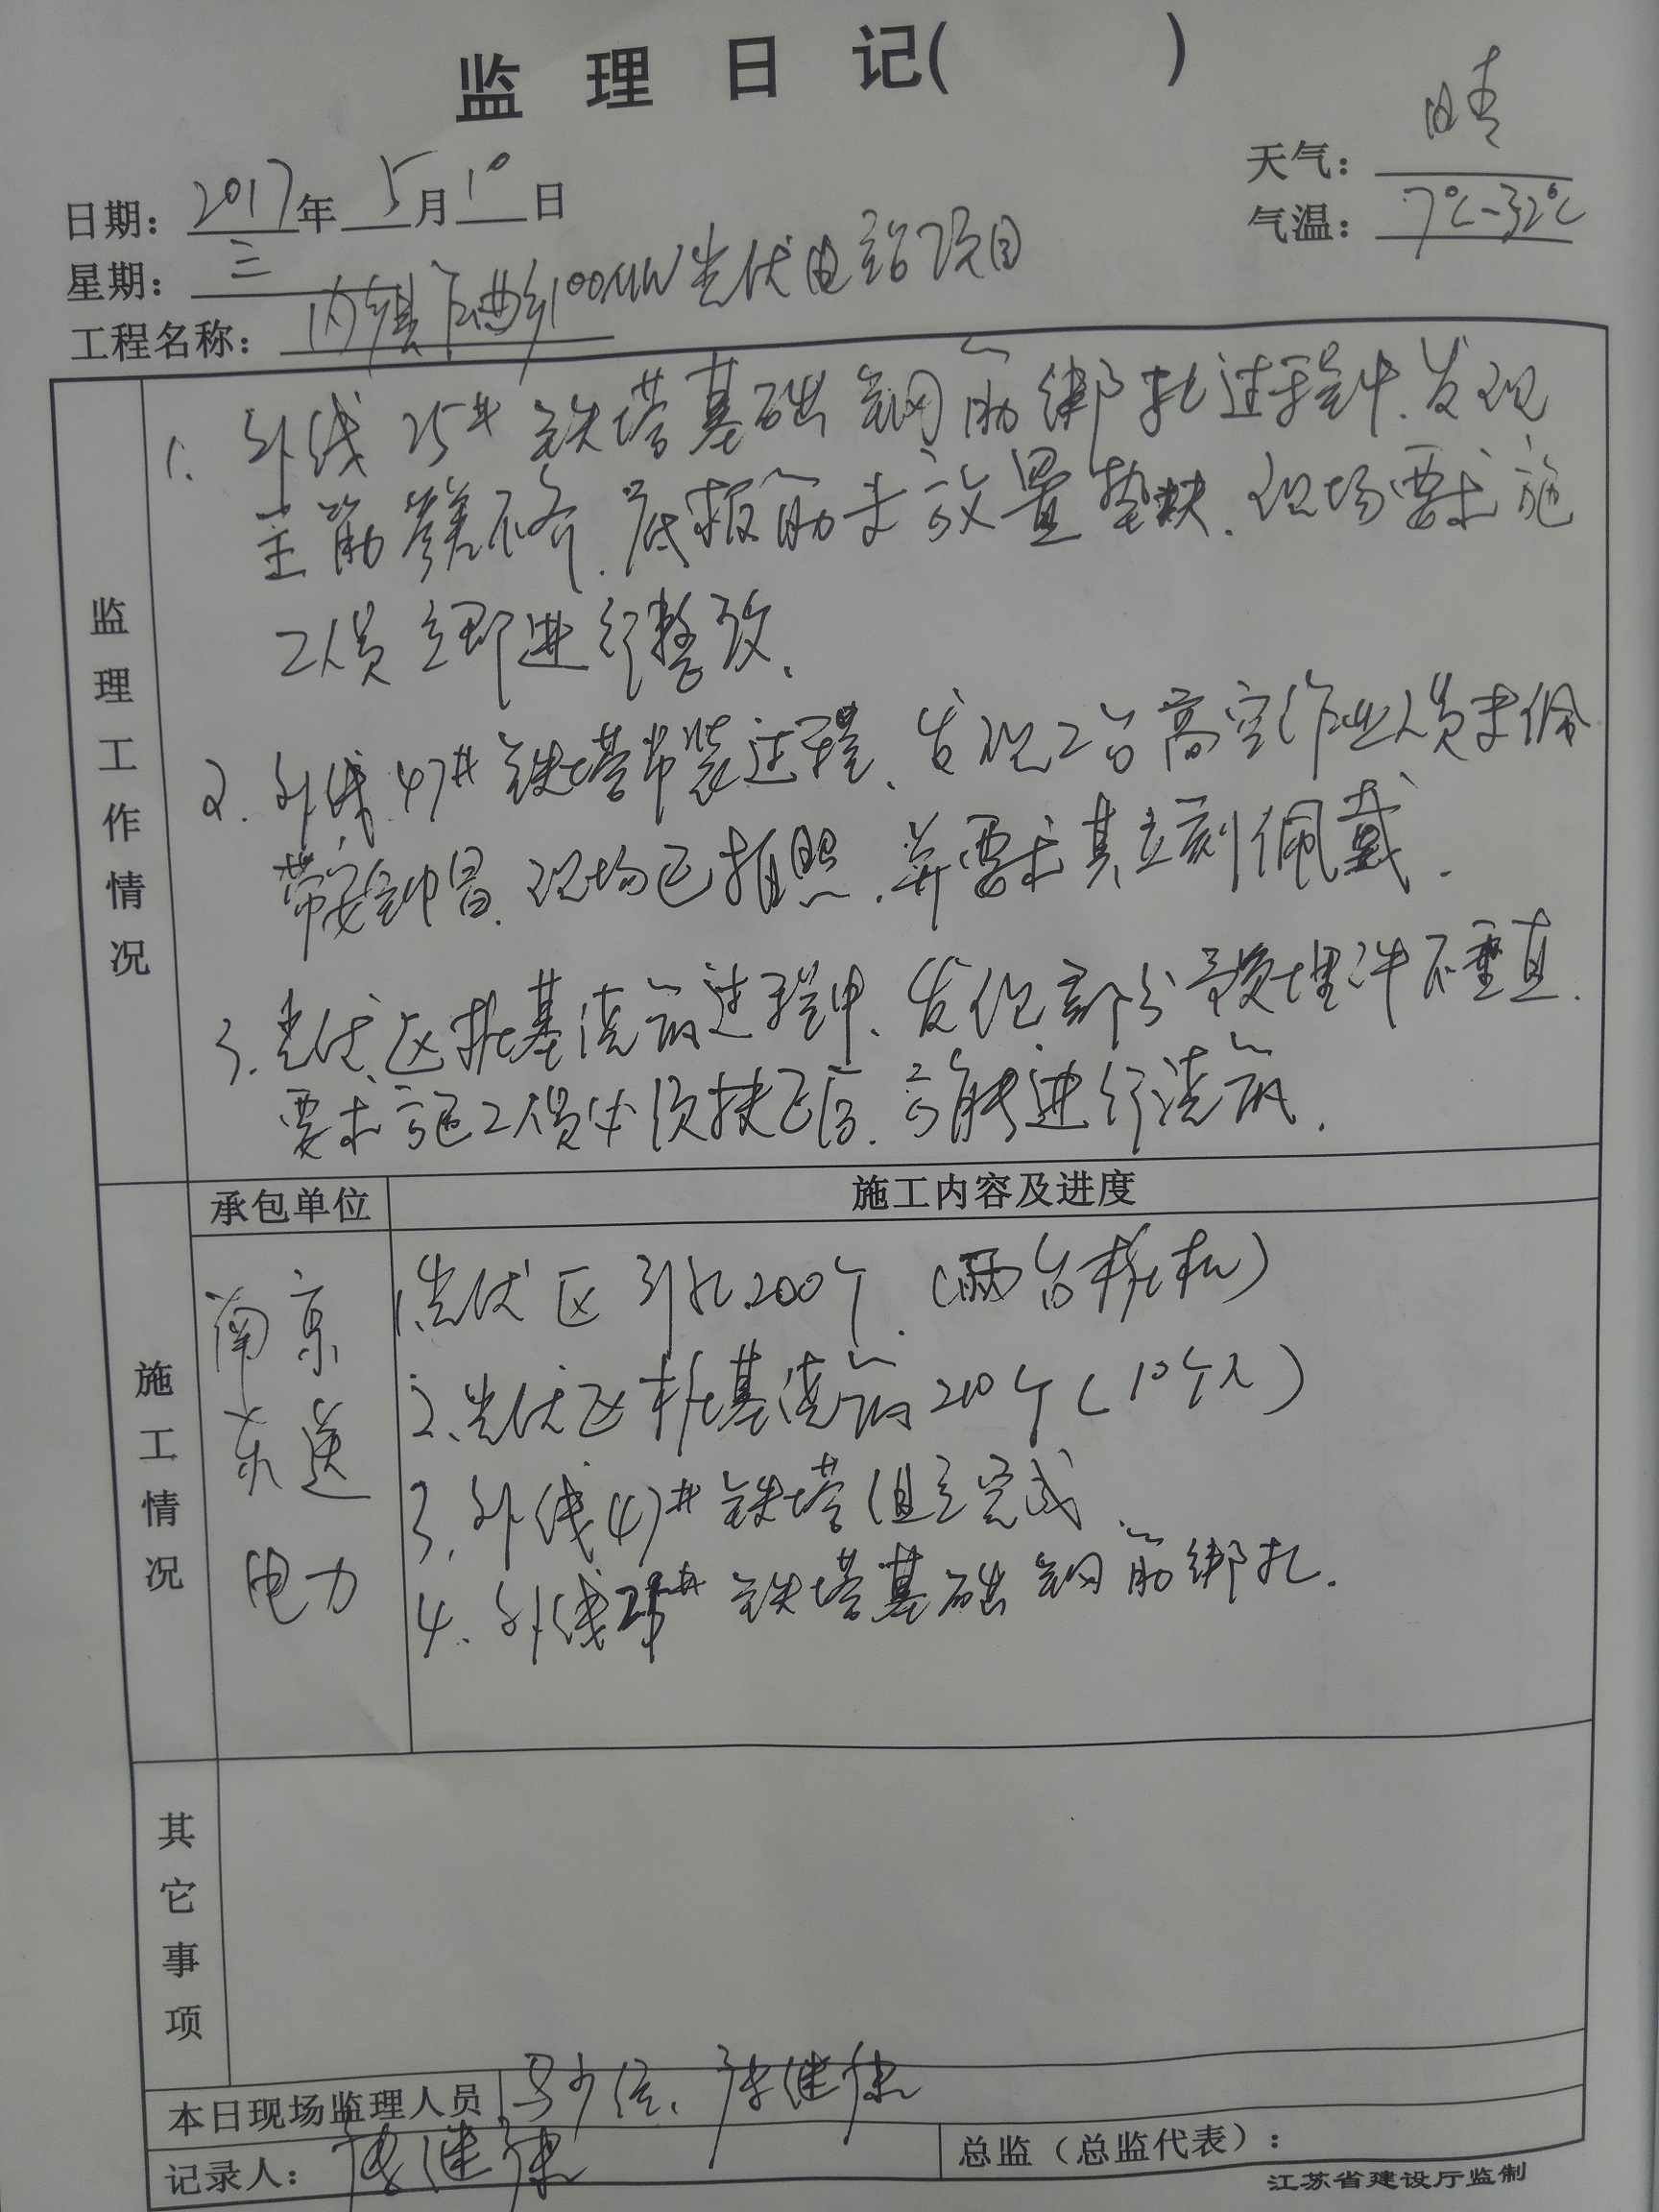 监理日记( )
天气： 晴
日期：2017年5月10日
气温：7℃-32℃
星期：三
工程名称：内镇县马山口 100MW光伏电站项目
监理工作情况
1. 外线25#铁塔基础钢筋绑扎过程中.发现
主筋 不齐.底板筋未放置垫块.现场要求施
工人员立即进行整改.
2. 外线47#铁塔吊装过程.发现2台高空作业人员未佩
带安全帽.现场已拍照.并要求其立刻佩戴.
3.光伏区桩基浇筑过程中.发现部分预埋件不垂直.
要求施工人员必须扶正后.方能进行浇筑.
承包单位 施工内容及进度
施工情况
南京
东送
电力
1.光伏区引孔200个.(两台桩机)
2、光伏区桩基浇筑210个(10个人)
3.外线47#铁塔组立完成
4.外线25#铁塔基础钢筋绑扎.
其它事项
本日现场监理人员
记录人：
总监（总监代表）：
江苏省建设厅监制